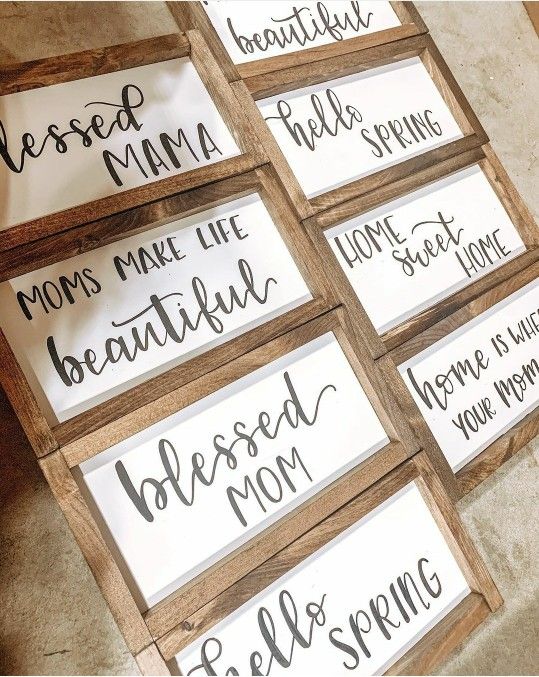 lessed
MAMA
MOMS MAKE LIFE
beautiful
blessed
MOM
hello
SPRING
beautiful
hello
SPRING
HOME
sweet
HOME
home IS WHE
YOUR MOM